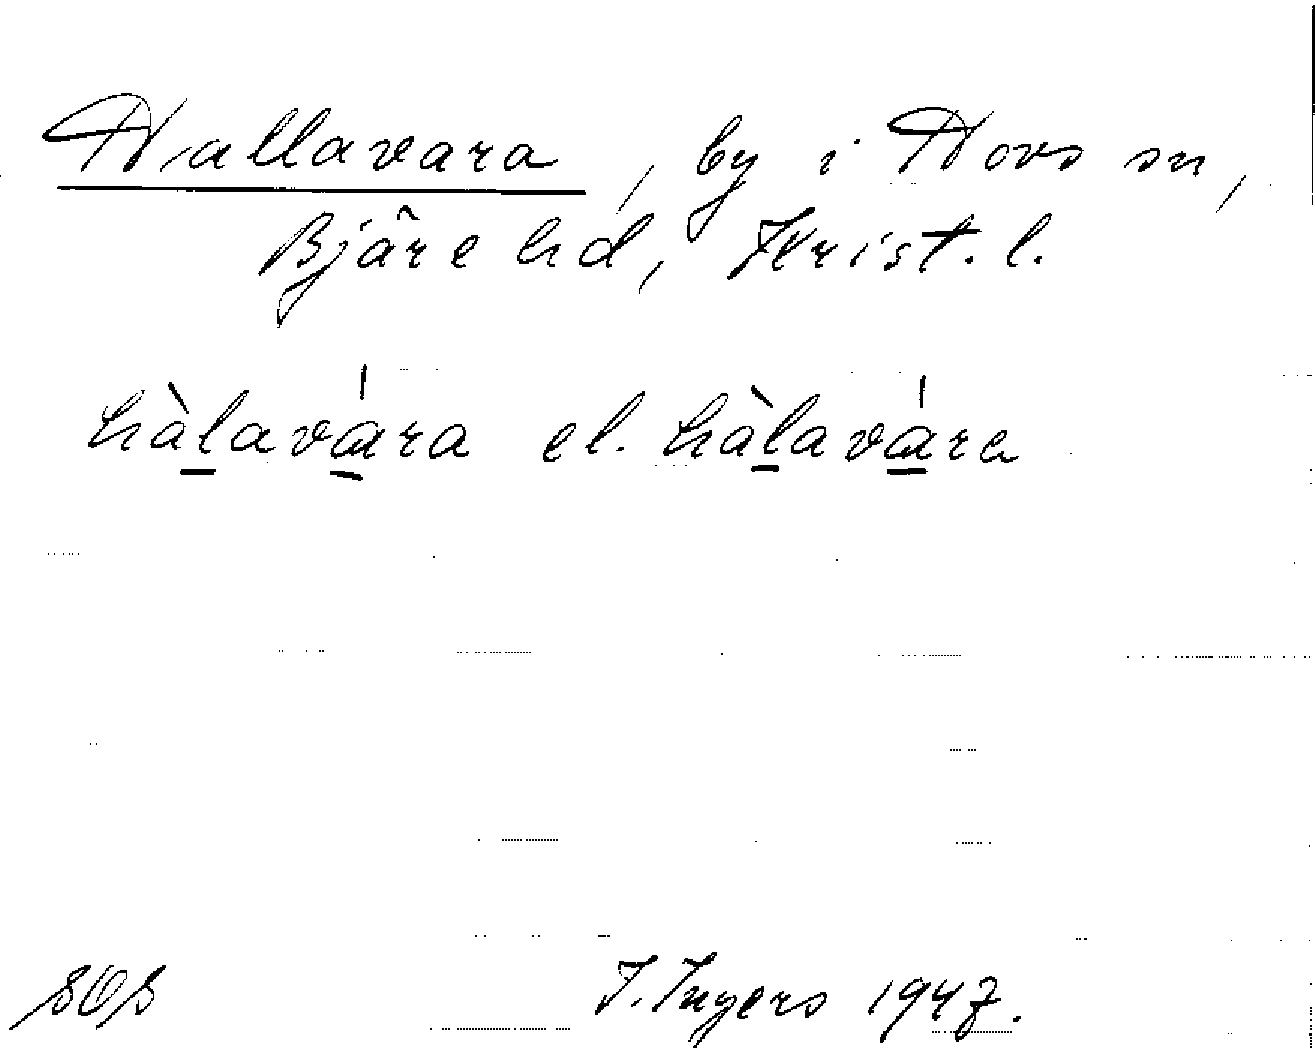 Hallavara, by i Hovs sn,
Bjäre hd, Krist. l.
hàlavára el. hàlavára
SOS I. Ingers 1947.